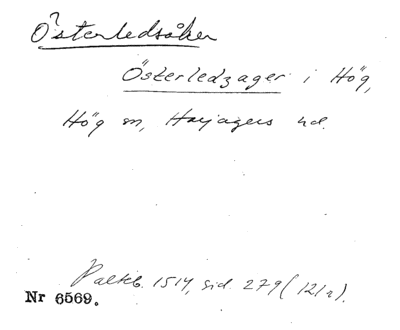 Österledsåker
Österledzager i Hög,
Hög sn, Harjagers hd.
Palteb. 1514, sid. 279 (121r).
Nr 6569.